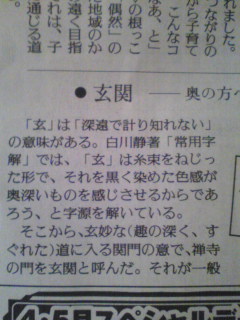 れました。
つながりの
から子育て
こんなコ
なあ、と」
の根っこ
偶然」の
地域のか
遠く目指
れは、子
通じる道
●玄関──奥の方へ
「玄」は「深遠で計り知れない」
の意味がある。白川静著「常用字
解」では、「玄」は糸束をねじっ
た形で、それを黒く染めた色感が
奥深いものを感じさせるからであ
ろう、と字源を解いている。
そこから、玄妙な(趣の深く、す
ぐれた)道に入る関門の意で、禅寺
の門を玄関と呼んだ。それが一般
4・5月スペシャルデ